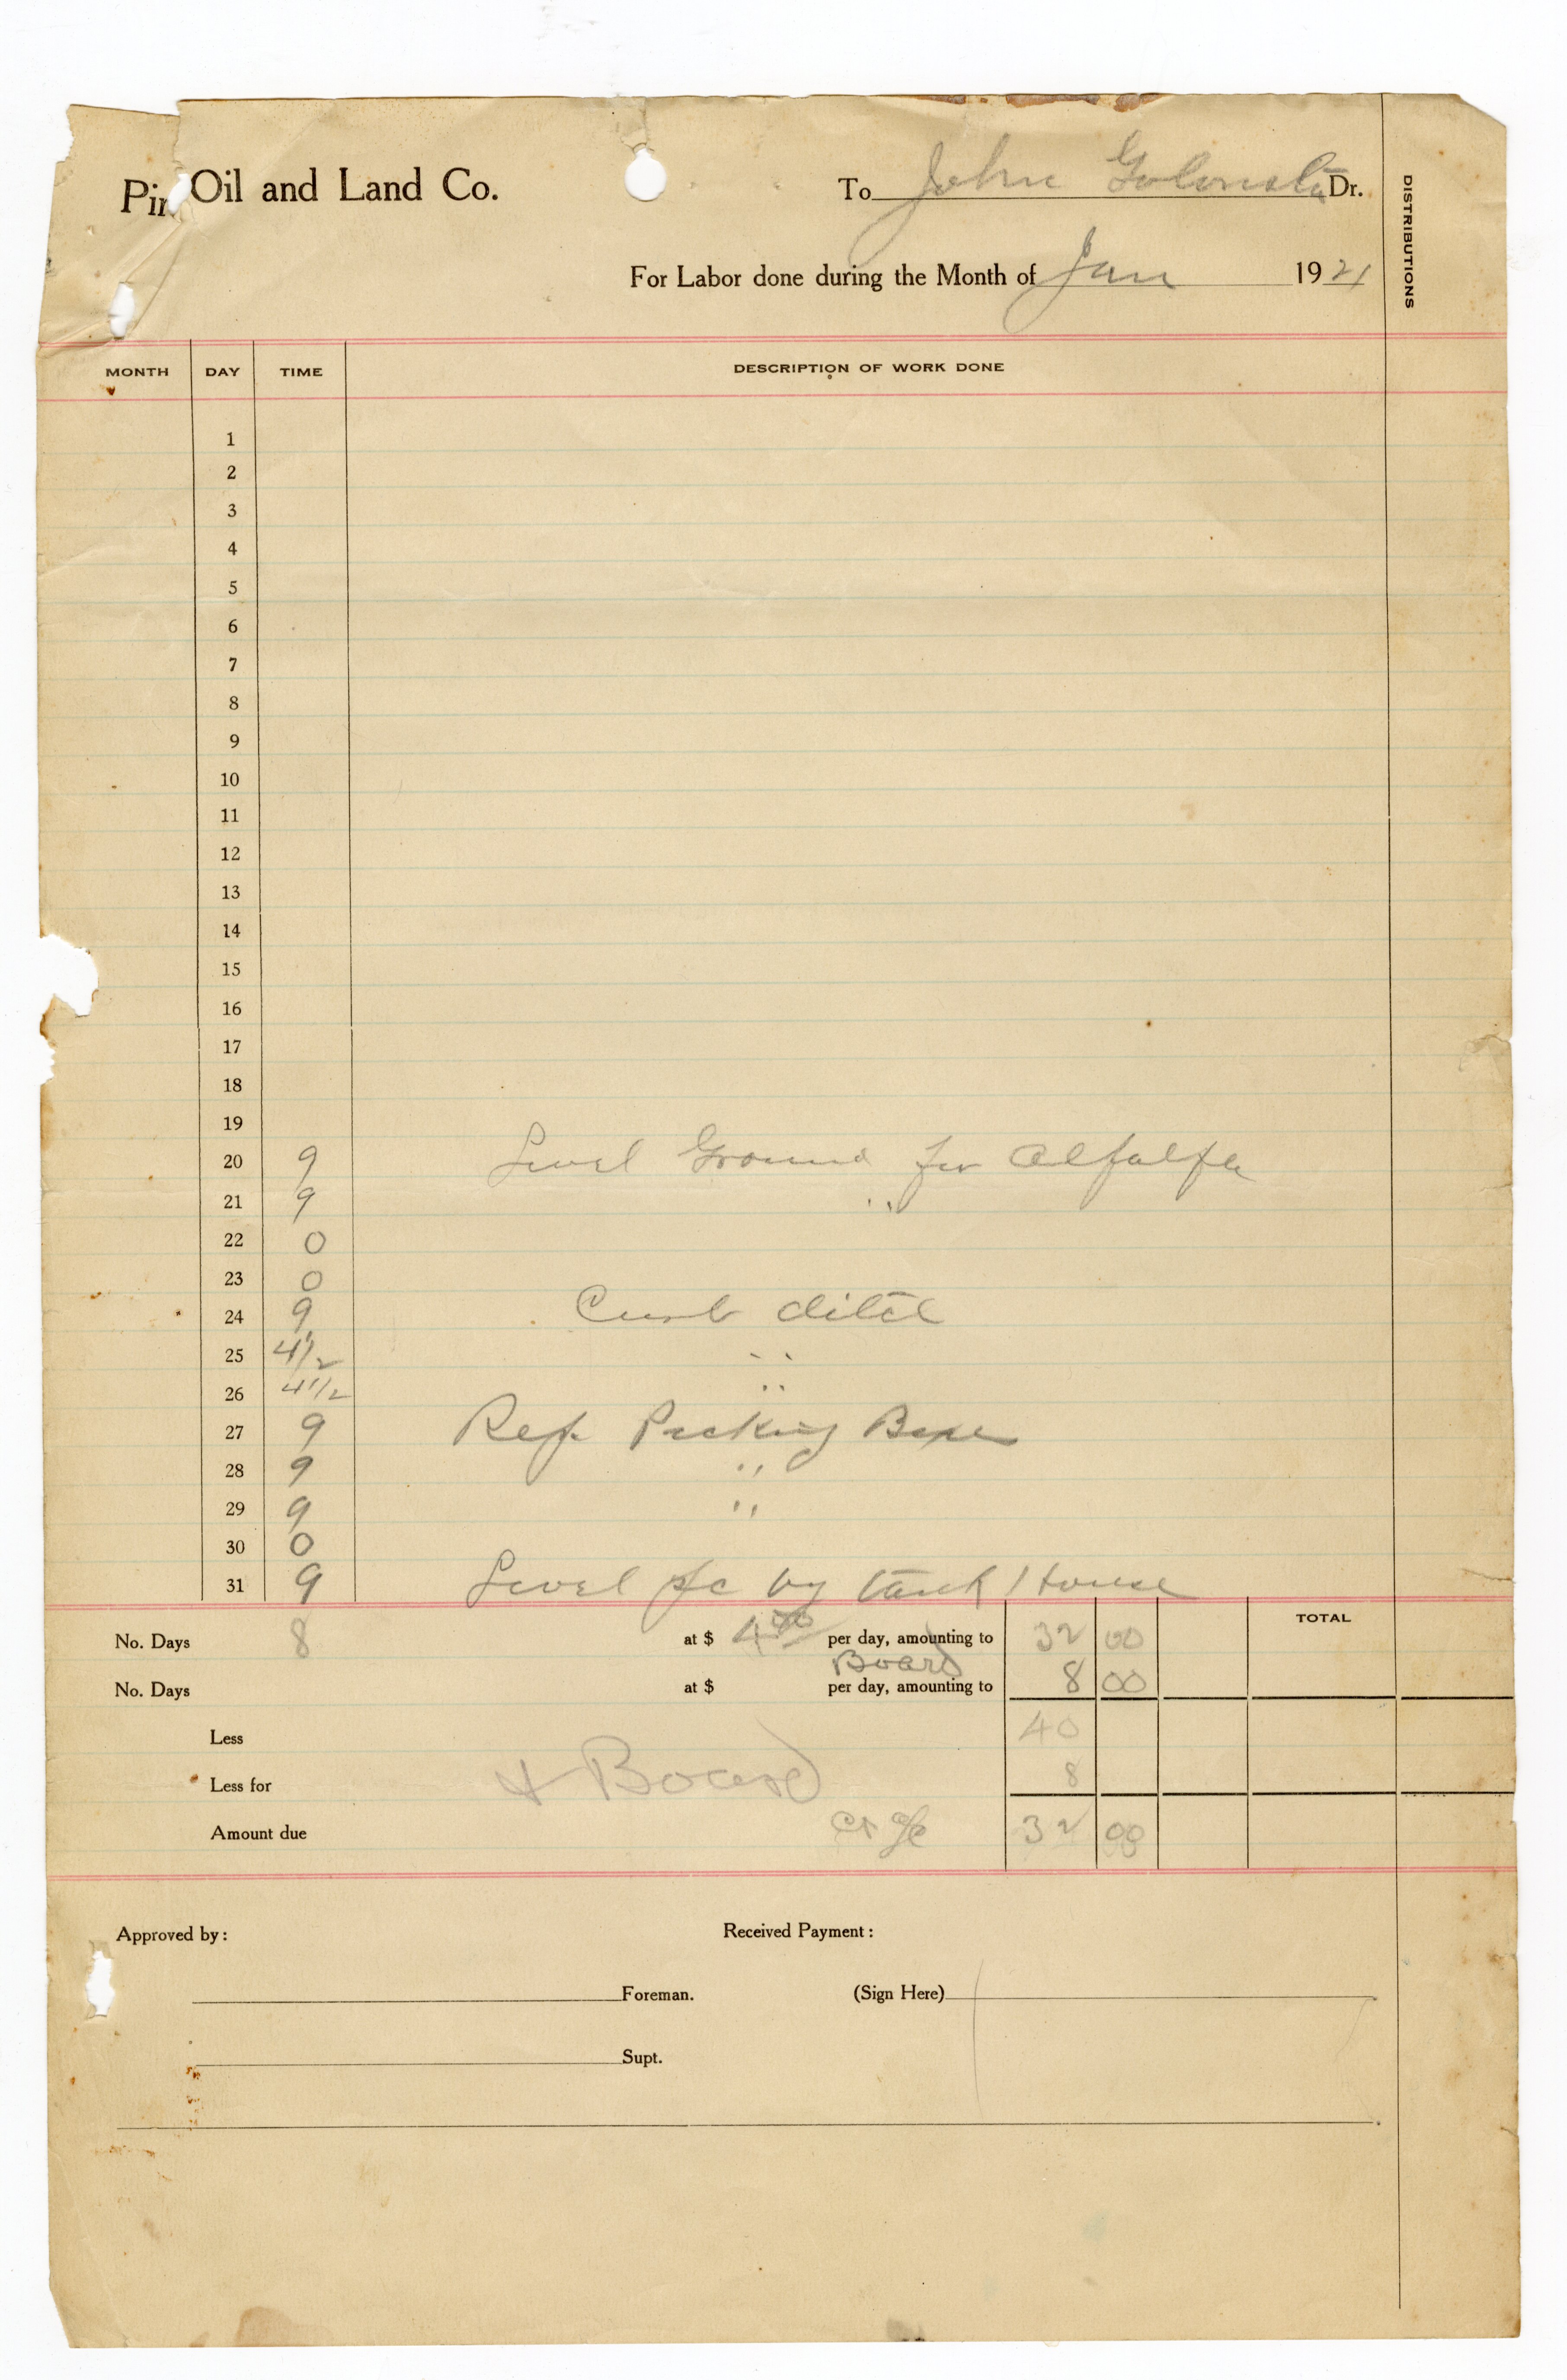 Oil and Land Co.
To John Dr.
For Labor done during the Month of Jan 1921
DISTRIBUTIONS
MONTH DAY TIME DESCRIPTION OF WORK DONE
1
2
3
4
5
6
7
8
9
10
11
12
13
14
15
16
17
18
19
20 9 Level Ground for Alfalfa
21 9 "
22 0
23 0
24 9 Curb ditch
25 4 1/2 "
26 4 1/2 "
27 9 Rep. Packing Boxes
28 9 "
29 9 "
30 0
31 9 Level by tank House
TOTAL
No. Days 8 at $ 4 00 per day, amounting to 32 00
Board
No. Days at $ per day, amounting to 8 00
Less 40
Less for + Board 8
Amount due 32 00
Approved by: Received Payment:
Foreman. (Sign Here)
Supt.